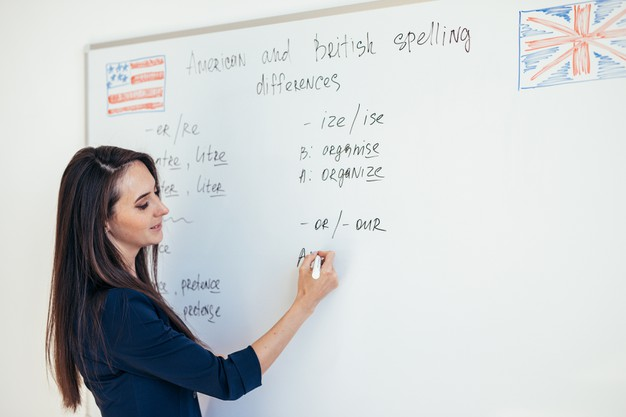 American and British spelling
differences
- er/re
litre
liter
pretence
pretense
- ize/ise
B: organise
A: organize
- or/-our
A: